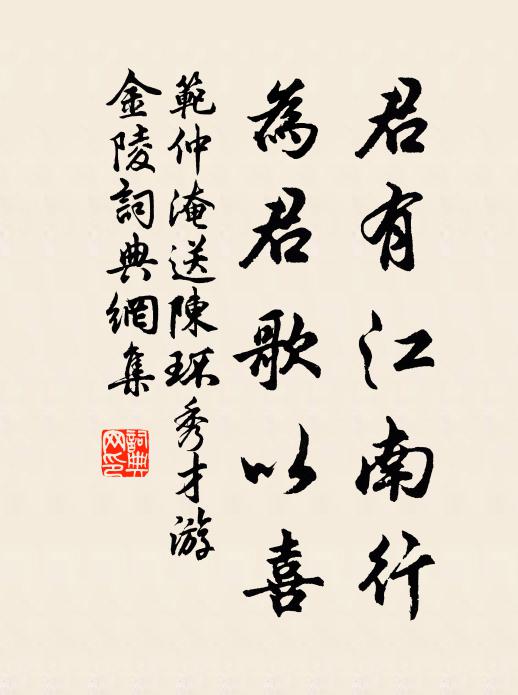 君有江南行
為君歌以喜
範仲淹送陳琢秀才游
金陵詞典網集
詞典網印